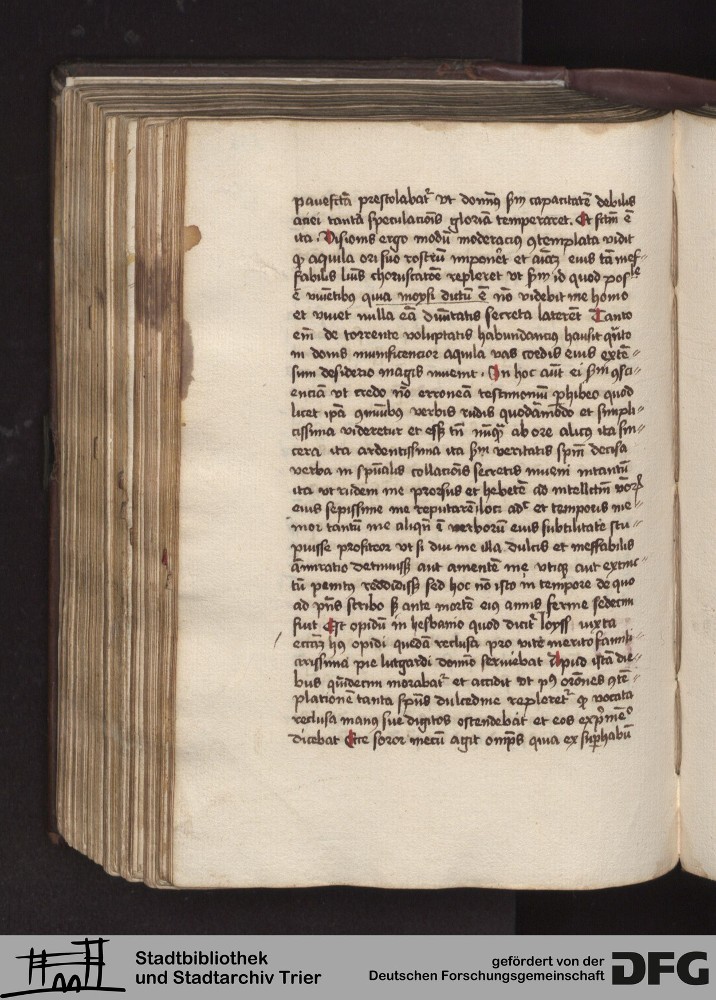 pauefctā prestolabat᷑ vt donniꝰ ẜm capacitatē debilis
aciei tantā speculacōis gloriā temperaret. Et fctm̄ ē
ita. Visionis ergo modū moderaciꝰ ɔtemplata vidit
ꝙ aquila ori suo rostrū imponēt et aīaꝫ eiꝰ tā inef⸗
fabilis luīs choruscatōe repleret vt ẜm id quod posˡᵉ
ē viuētibus quia moysi dictū ē nō videbit me homo
et viuet nulla eā diuītatis secreta laterēt Tanto
em̄ de torrente voluptatis habundanciꝰ hausit quāto
in donis munificencior aquila vas cordis eius extē⸗
sum desiderio magis inuenit. In hoc aūt ei ẜm ɔsci⸗
enciā vt credo nō erroneā testimoniū ꝑhibeo quod
licet ipā oīnibus verbis rudis quodāmodo et simpli⸗
cissima videretur et esset tn̄ nūqꝫ ab ore alicuiꝰ ita sin⸗
cera ita ardentissima ita ẜm veritatis spm̄ decisa
verba in spūalis collacōis secretis inueni intantū
ita vt rudem me prorsus et hebetē ad intellctm̄ vōꝝ
eius sepissime me reputarē loci adᶜ et temporis me⸗
mor tantū me aliqn̄ ī verborū eius subtilitate stu⸗
puisse profiteor vt si diu me illa dulcis et ineffabilis
āmiratio detinuisset aut amentē me vtiqꝫ aut extinc⸗
tū penitꝰ reddidisset sed hoc nō isto in tempore de quo
ad pn̄s scribo sꝫ ante mortē eiꝰ annis ferme sedecim
fuit Est opidū in hesbanio quod dicit᷑ loyss iuxta
ecciaꝫ hꝰ opidi quedā reclusa pro vite merito famili⸗
arissima pie lutgardi domīo seruiebat Apud istā die⸗
bus quīdecim morabat᷑ et accidit vt pꝰ orōnes ɔtē⸗
platione tanta spūs dulcedine repleret᷑ ꝙ vocata
reclusa manꝰ sue digitos ostendebat et eos expⁱmēˢ
dicebat Ecce soror mecū agit omps quia ex suꝑhabū
Stadtbibliothek
und Stadtarchiv Trier
gefördert von der
Deutschen Forschungsgemeinschaft
DFG